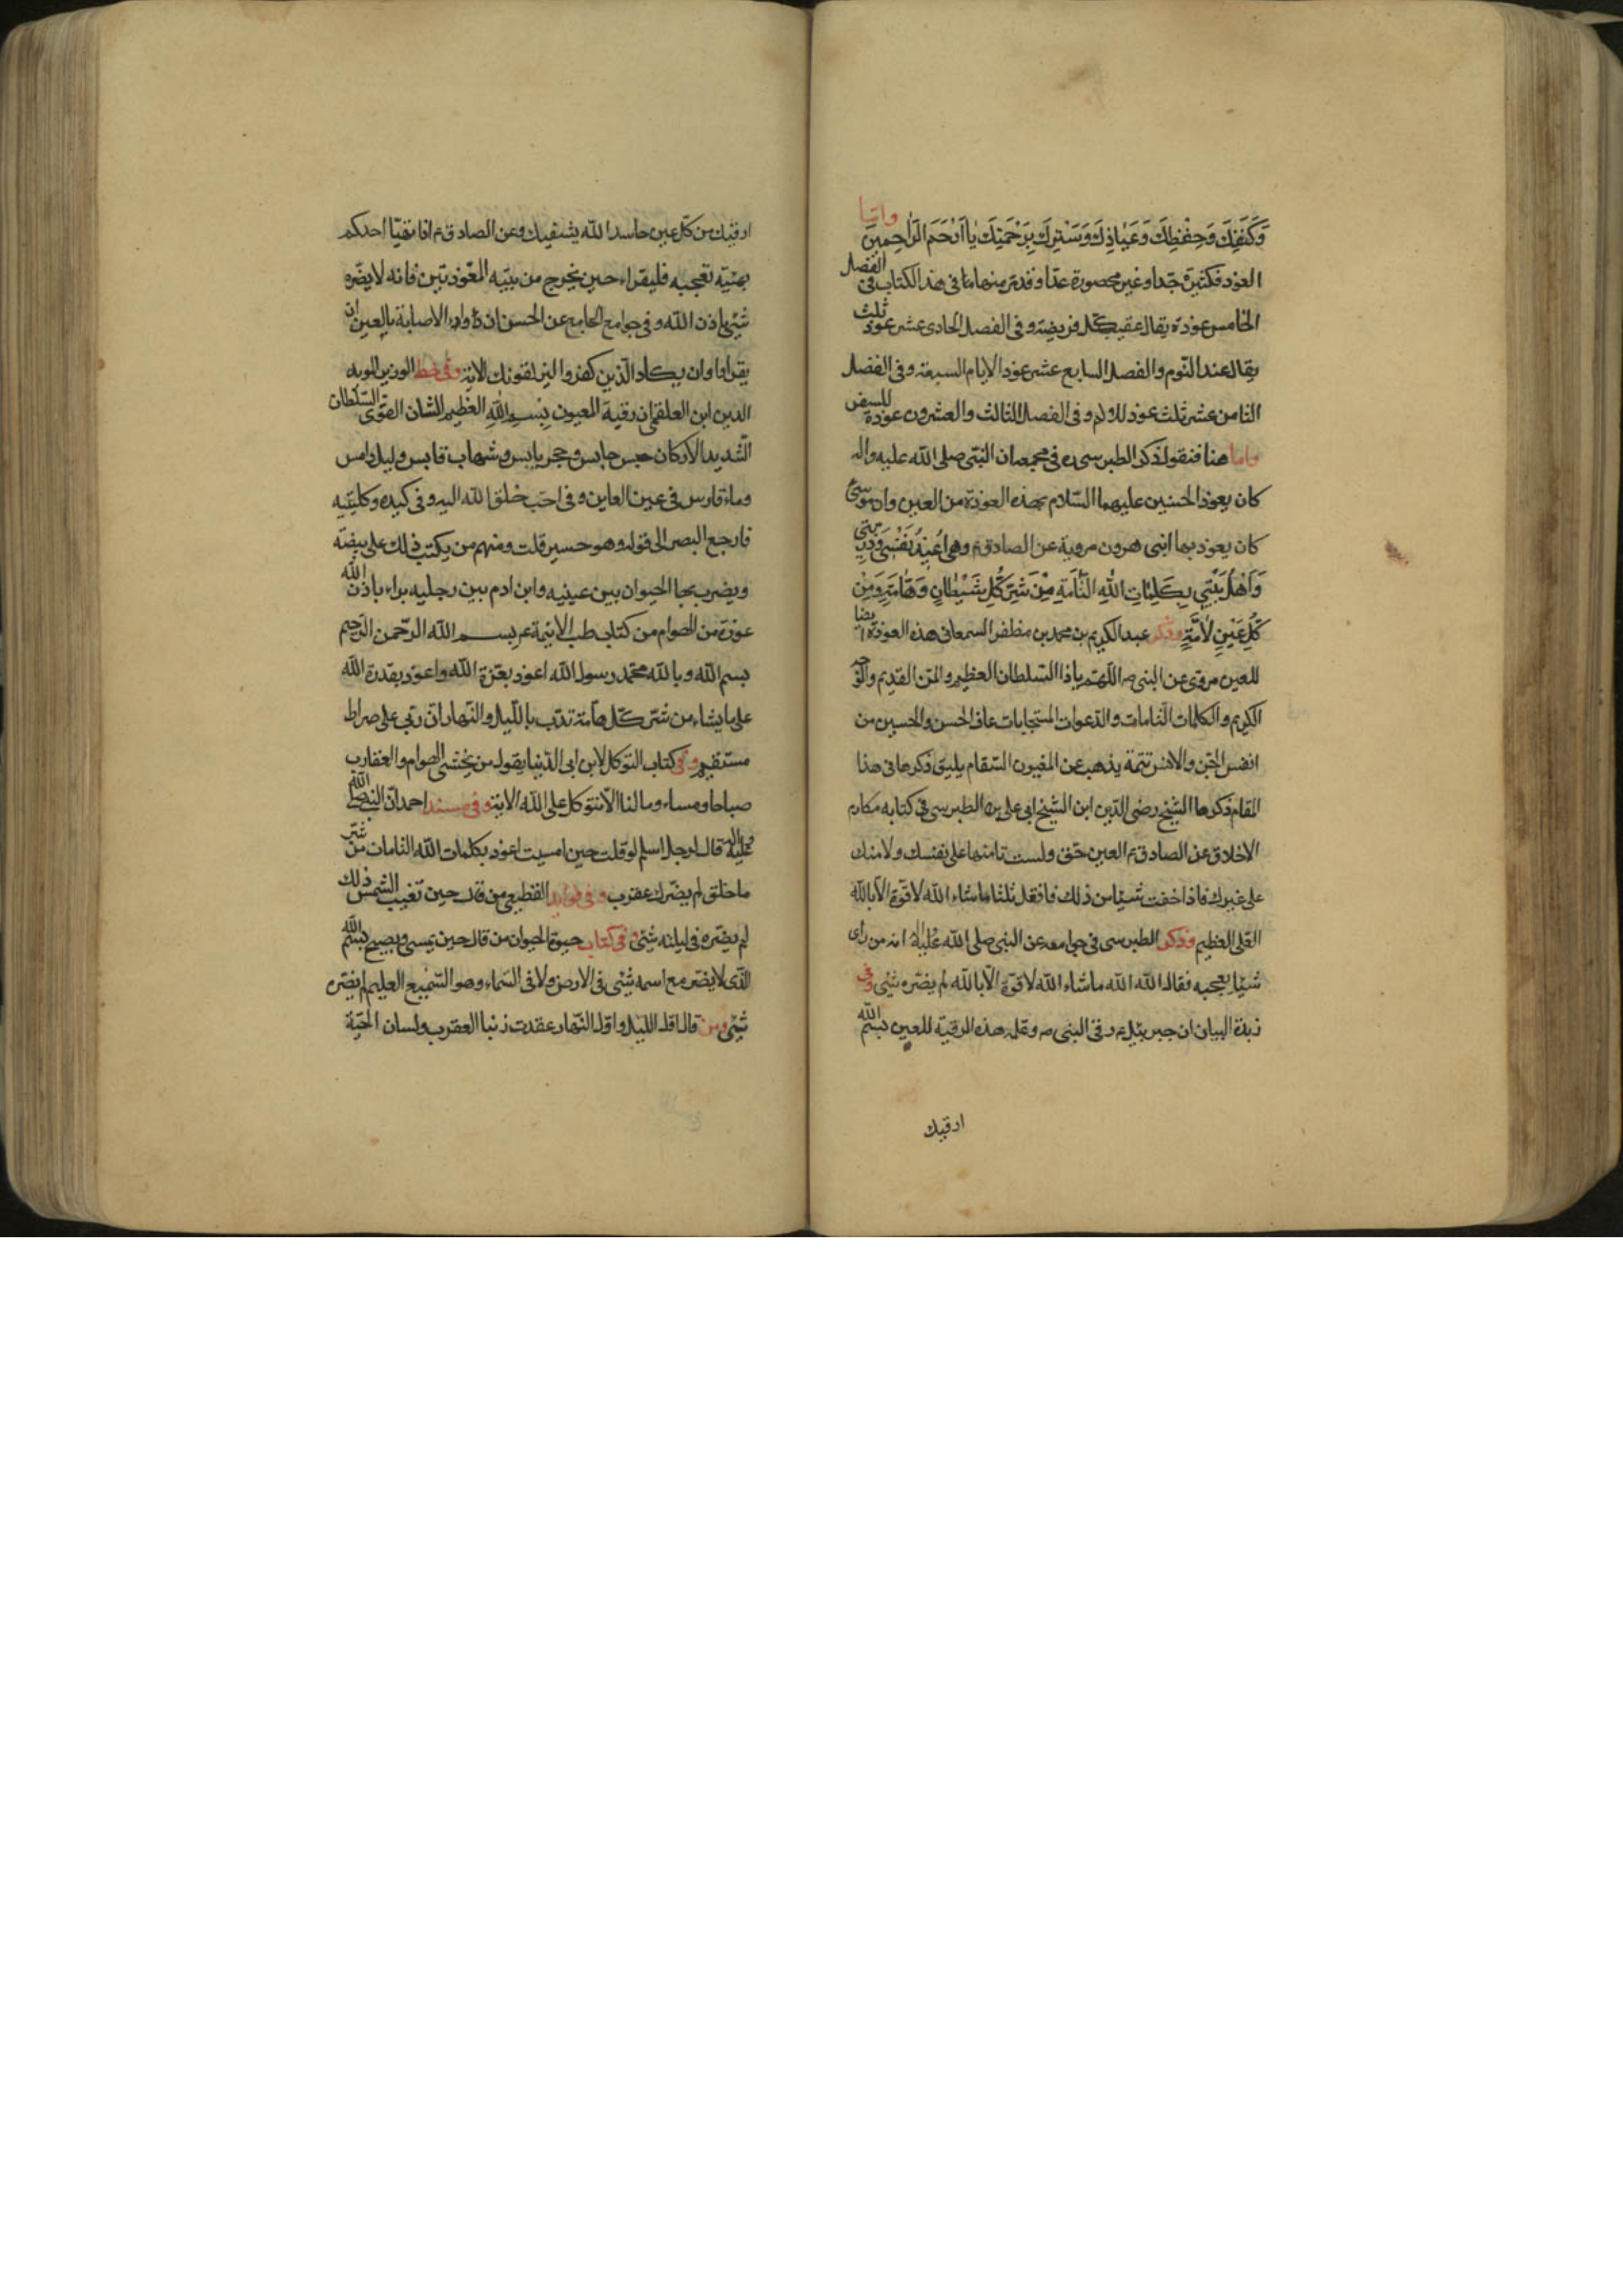 وَكَنَفِكَ وَحِفْظِكَ وَعِيَاذِكَ وَسَتْرِكَ بِرَحْمَتِكَ يَا أَرْحَمَ الرَّاحِمِينَ واما
العوذ فكثيرة جدا وغير محصورة عدا وقد مر منها ما في هذا الكتاب في الفصل
الخامس عوذة يقال عقيب كل فريضة وفى الفصل الحادى عشر عوذ ثلث
يقال عند النوم والفصل السابع عشر عوذ الايام السبعة وفى الفصل
الثامن عشر ثلث عوذ للولام وفى الفصل الثالث والعشرون عوذة للسفر
واما هنا فنقول ذكر الطبرسى ره فى مجمعه ان النبى صلى الله عليه واله
كان يعوذ الحسنين عليهما السلام بهذه العوذة من العين وان موسى
كان يعوذ بها ابنى هرون مروية عن الصادق ع وهى اُعِيذُ نَفْسِى وَذُرِّيَّتِى
وَاَهْلَ بَيْتِى بِكَلِمَاتِ اللهِ التَّامَّةِ مِنْ شَرِّ كُلِّ شَيْطَانٍ وَهَامَّةٍ وَمِنْ
كُلِّ عَيْنٍ لَامَّةٍ وذكر عبد الكريم بن محمد بن مظفر السمعانى هذه العوذة ايضا
للعين مروى عن النبى ص اللهم يا ذا السلطان العظيم والمن القديم والوجه
الكريم والكلمات التامات والدعوات المستجابات عاف الحسن والحسين من
انفس الجن والانس تتمة يذهب عن المعيون السقام يليق ذكرها فى هذا
المقام ذكرها الشيخ رضى الدين ابن الشيخ ابى على بن الطبرسى فى كتابه مكارم
الاخلاق عن الصادق ع العين حق ولست تامنها على نفسك ولا منك
على غيرك فاذا خفت شيئا من ذلك فافعل ثلثا ما شاء الله لا قوة الا بالله
العلى العظيم وذكر الطبرسى فى جوامعه عن النبى صلى الله عليه واله انه من رأى
شيئا يعجبه فقال الله الله ما شاء الله لا قوة الا بالله لم يضره شئ وفى
زبدة البيان ان جبرئيل ع رقى النبى ص وعلمه هذه الرقية للعين بسم الله
ارقيك
ارقيك من كل عين حاسد الله يشفيك وعن الصادق ع اذا تهيّا احدكم
بهيئة تعجبه فليقراء حين يخرج من بيته المعوذتين فانه لا يضره
شئ باذن الله وفى جوامع الجامع عن الحسن ان دواء الاصابة بالعين ان
يقراوا وان يكاد الذين كفروا ليزلقونك الاية وفى خط الوزير المويد
الدين ابن العلقمى ان رقية المعيون بِسْمِ اللهِ العظيم الشان القوى السلطان
الشديد الاركان حبس حابس وحجر يابس وشهاب قابس وليل دامس
وماء قارس فى عين العاين وفى احب خلق الله اليه وفى كبده وكليتيه
فارجع البصر الى قوله وهو حسير قلت ومنهم من يكتب ذلك على بيضة
ويضرب بها الحيوان بين عينيه وابن ادم بين رجليه براء باذن الله
عوذة من الهوام من كتاب طب الائمة ع بسم الله الرحمن الرحيم
بسم الله وبالله محمد رسول الله اعوذ بعزة الله واعوذ بقدرة الله
على ما يشاء من شر كل هامة تدب بالليل والنهار ان ربى على صراط
مستقيم وفى كتاب التوكل لابن ابى الدنيا يقول من يخشى الهوام والعقارب
صباحا ومساء وما لنا الا نتوكل على الله الاية وفى مسند احمد ان النبى صلى الله
عليه واله قال لرجل اسلم لو قلت حين امسيت اعوذ بكلمات الله التامات من شر
ما خلق لم يضرك عقرب وفى فوايد القطيعى من قال حين تغيب الشمس ذلك
لم يضره فى ليلته شئ وفى كتاب حيوة الحيوان من قال حين يمسى ويصبح بسم الله
الذى لا يضر مع اسمه شئ فى الارض ولا فى السماء وهو السميع العليم لم يضره
شئ ومن قال اول الليل واول النهار عقدت زنبا العقرب ولسان الحية